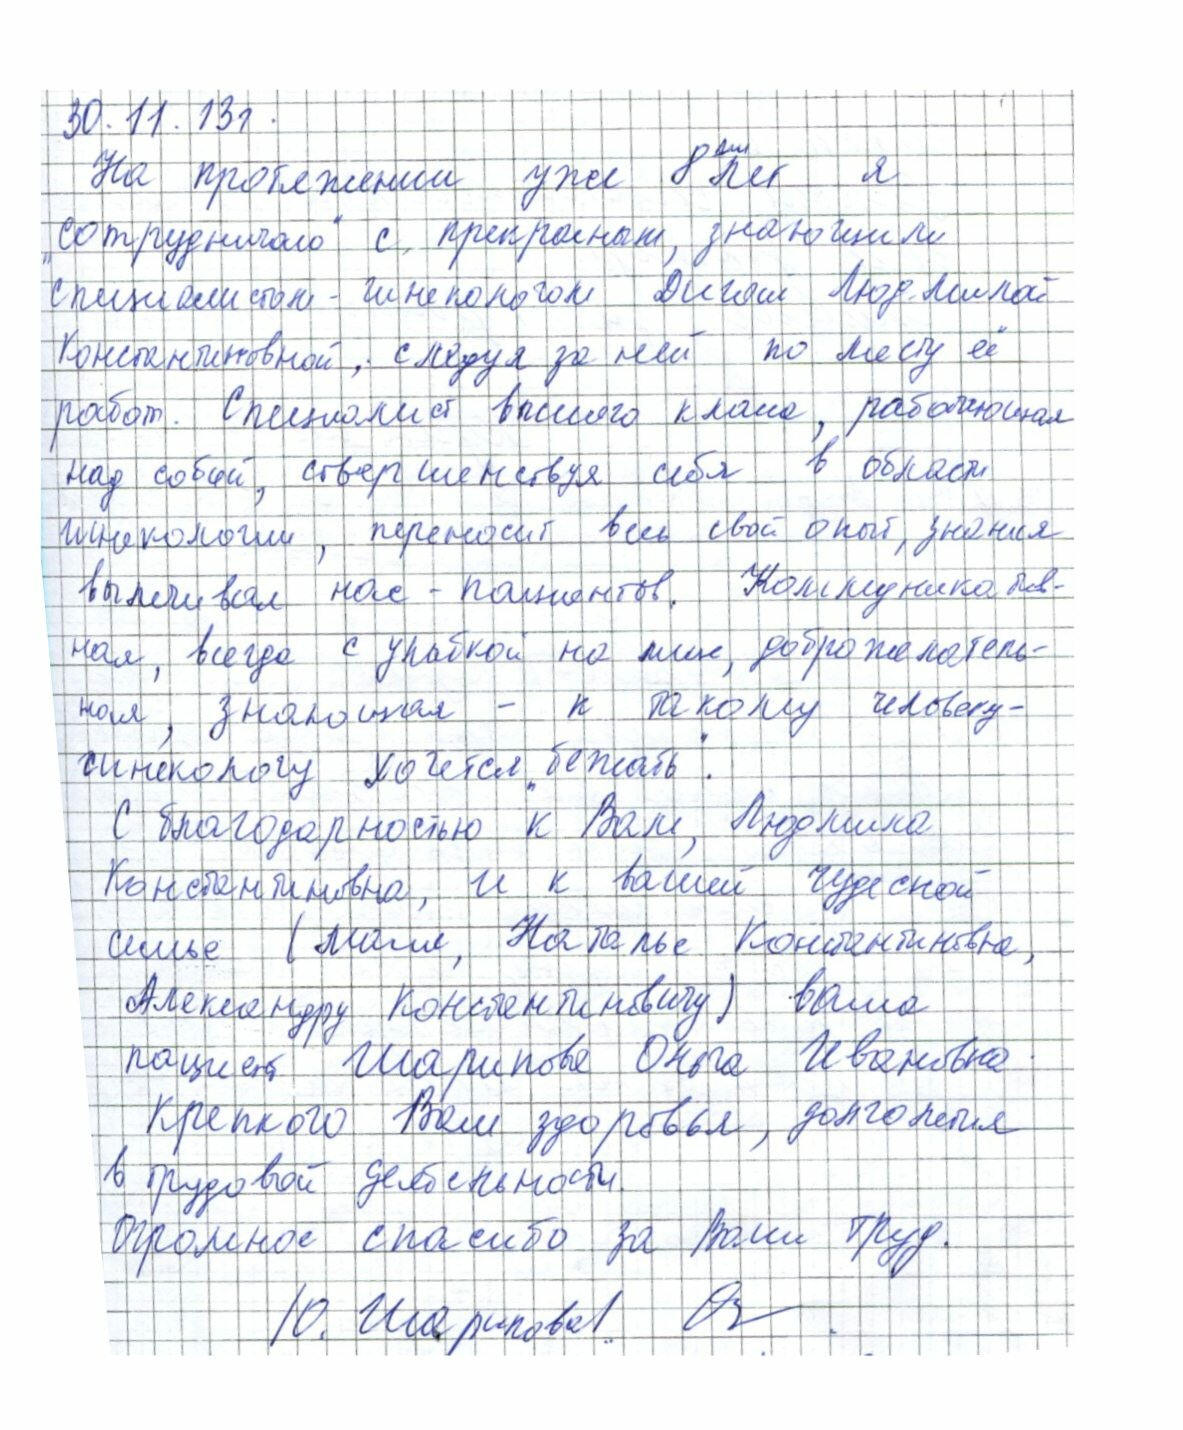 30.11.13г.
На протяжении уже 8ми лет я
„сотрудничаю" с прекрасным, знающим
специалистом-гинекологом Дигай Людмилой
Константиновной, следуя за ней по месту её
работ. Специалист высшего класса, работающая
над собой, совершенствуя себя в области
гинекологии, переносит весь свой опыт, знания
вылечивая нас - пациентов. Коммуникатив-
ная, всегда с улыбкой на лице, доброжелатель-
ная, знающая - к такому человеку-
гинекологу хочется „бежать".
С благодарностью к Вам, Людмила
Константиновна, и к вашей чудесной
семье (маме, Наталье Константиновна,
Александру Константиновичу) ваша
пациент Шарипова Ольга Ивановна.
Крепкого Вам здоровья, долголетия
в трудовой деятельности.
Огромное спасибо за Ваш труд.
/О. Шарипова/